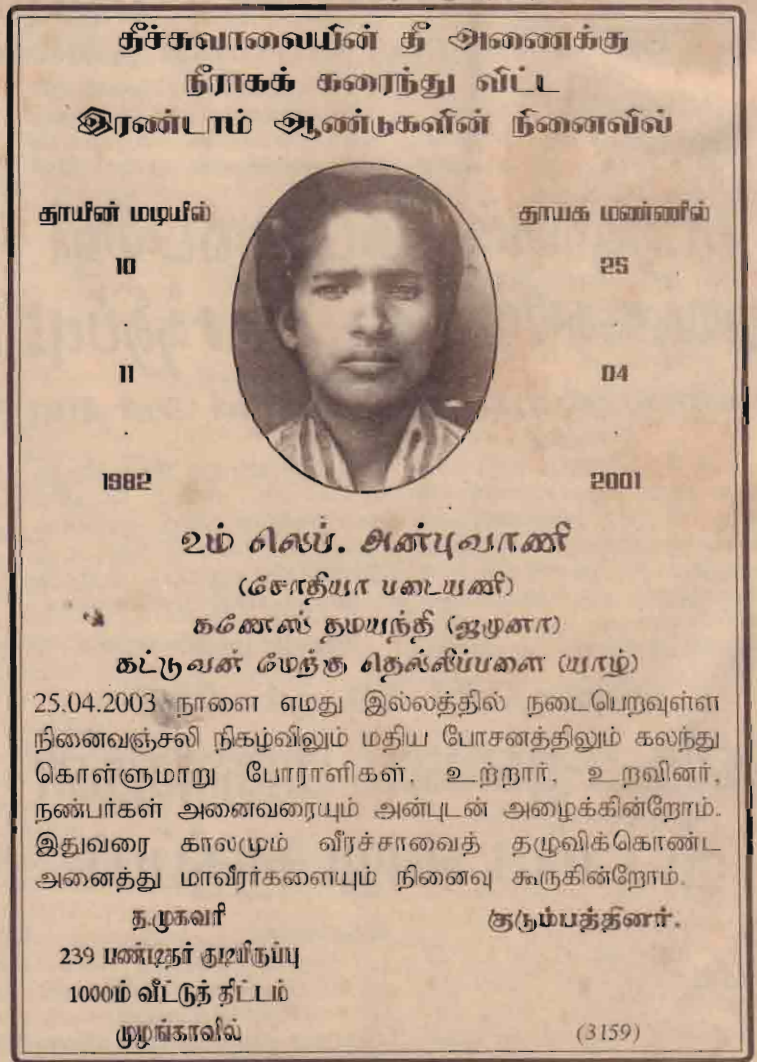 தீச்சுவாலையின் தீ அணைக்கு
நீராகக் கரைந்து விட்ட
இரண்டாம் ஆண்டுகளின் நினைவில்
தாயின் மடியில்
10
.
11
.
1982
தாயக மண்ணில்
25
.
04
.
2001
2ம் லெப். அன்புவாணி
(சோதியா படையணி)
கணேஸ் தமயந்தி (ஜமுனா)
கட்டுவன் மேற்கு தெல்லிப்பளை (யாழ்)
25.04.2003 நாளை எமது இல்லத்தில் நடைபெறவுள்ள
நினைவஞ்சலி நிகழ்விலும் மதிய போசனத்திலும் கலந்து
கொள்ளுமாறு போராளிகள், உற்றார், உறவினர்,
நண்பர்கள் அனைவரையும் அன்புடன் அழைக்கின்றோம்.
இதுவரை காலமும் வீரச்சாவைத் தழுவிக்கொண்ட
அனைத்து மாவீரர்களையும் நினைவு கூருகின்றோம்.
த.முகவரி
239 பண்டிதர் குடியிருப்பு
1000ம் வீட்டுத் திட்டம்
முழங்காவில்
குடும்பத்தினர்.
(3159)